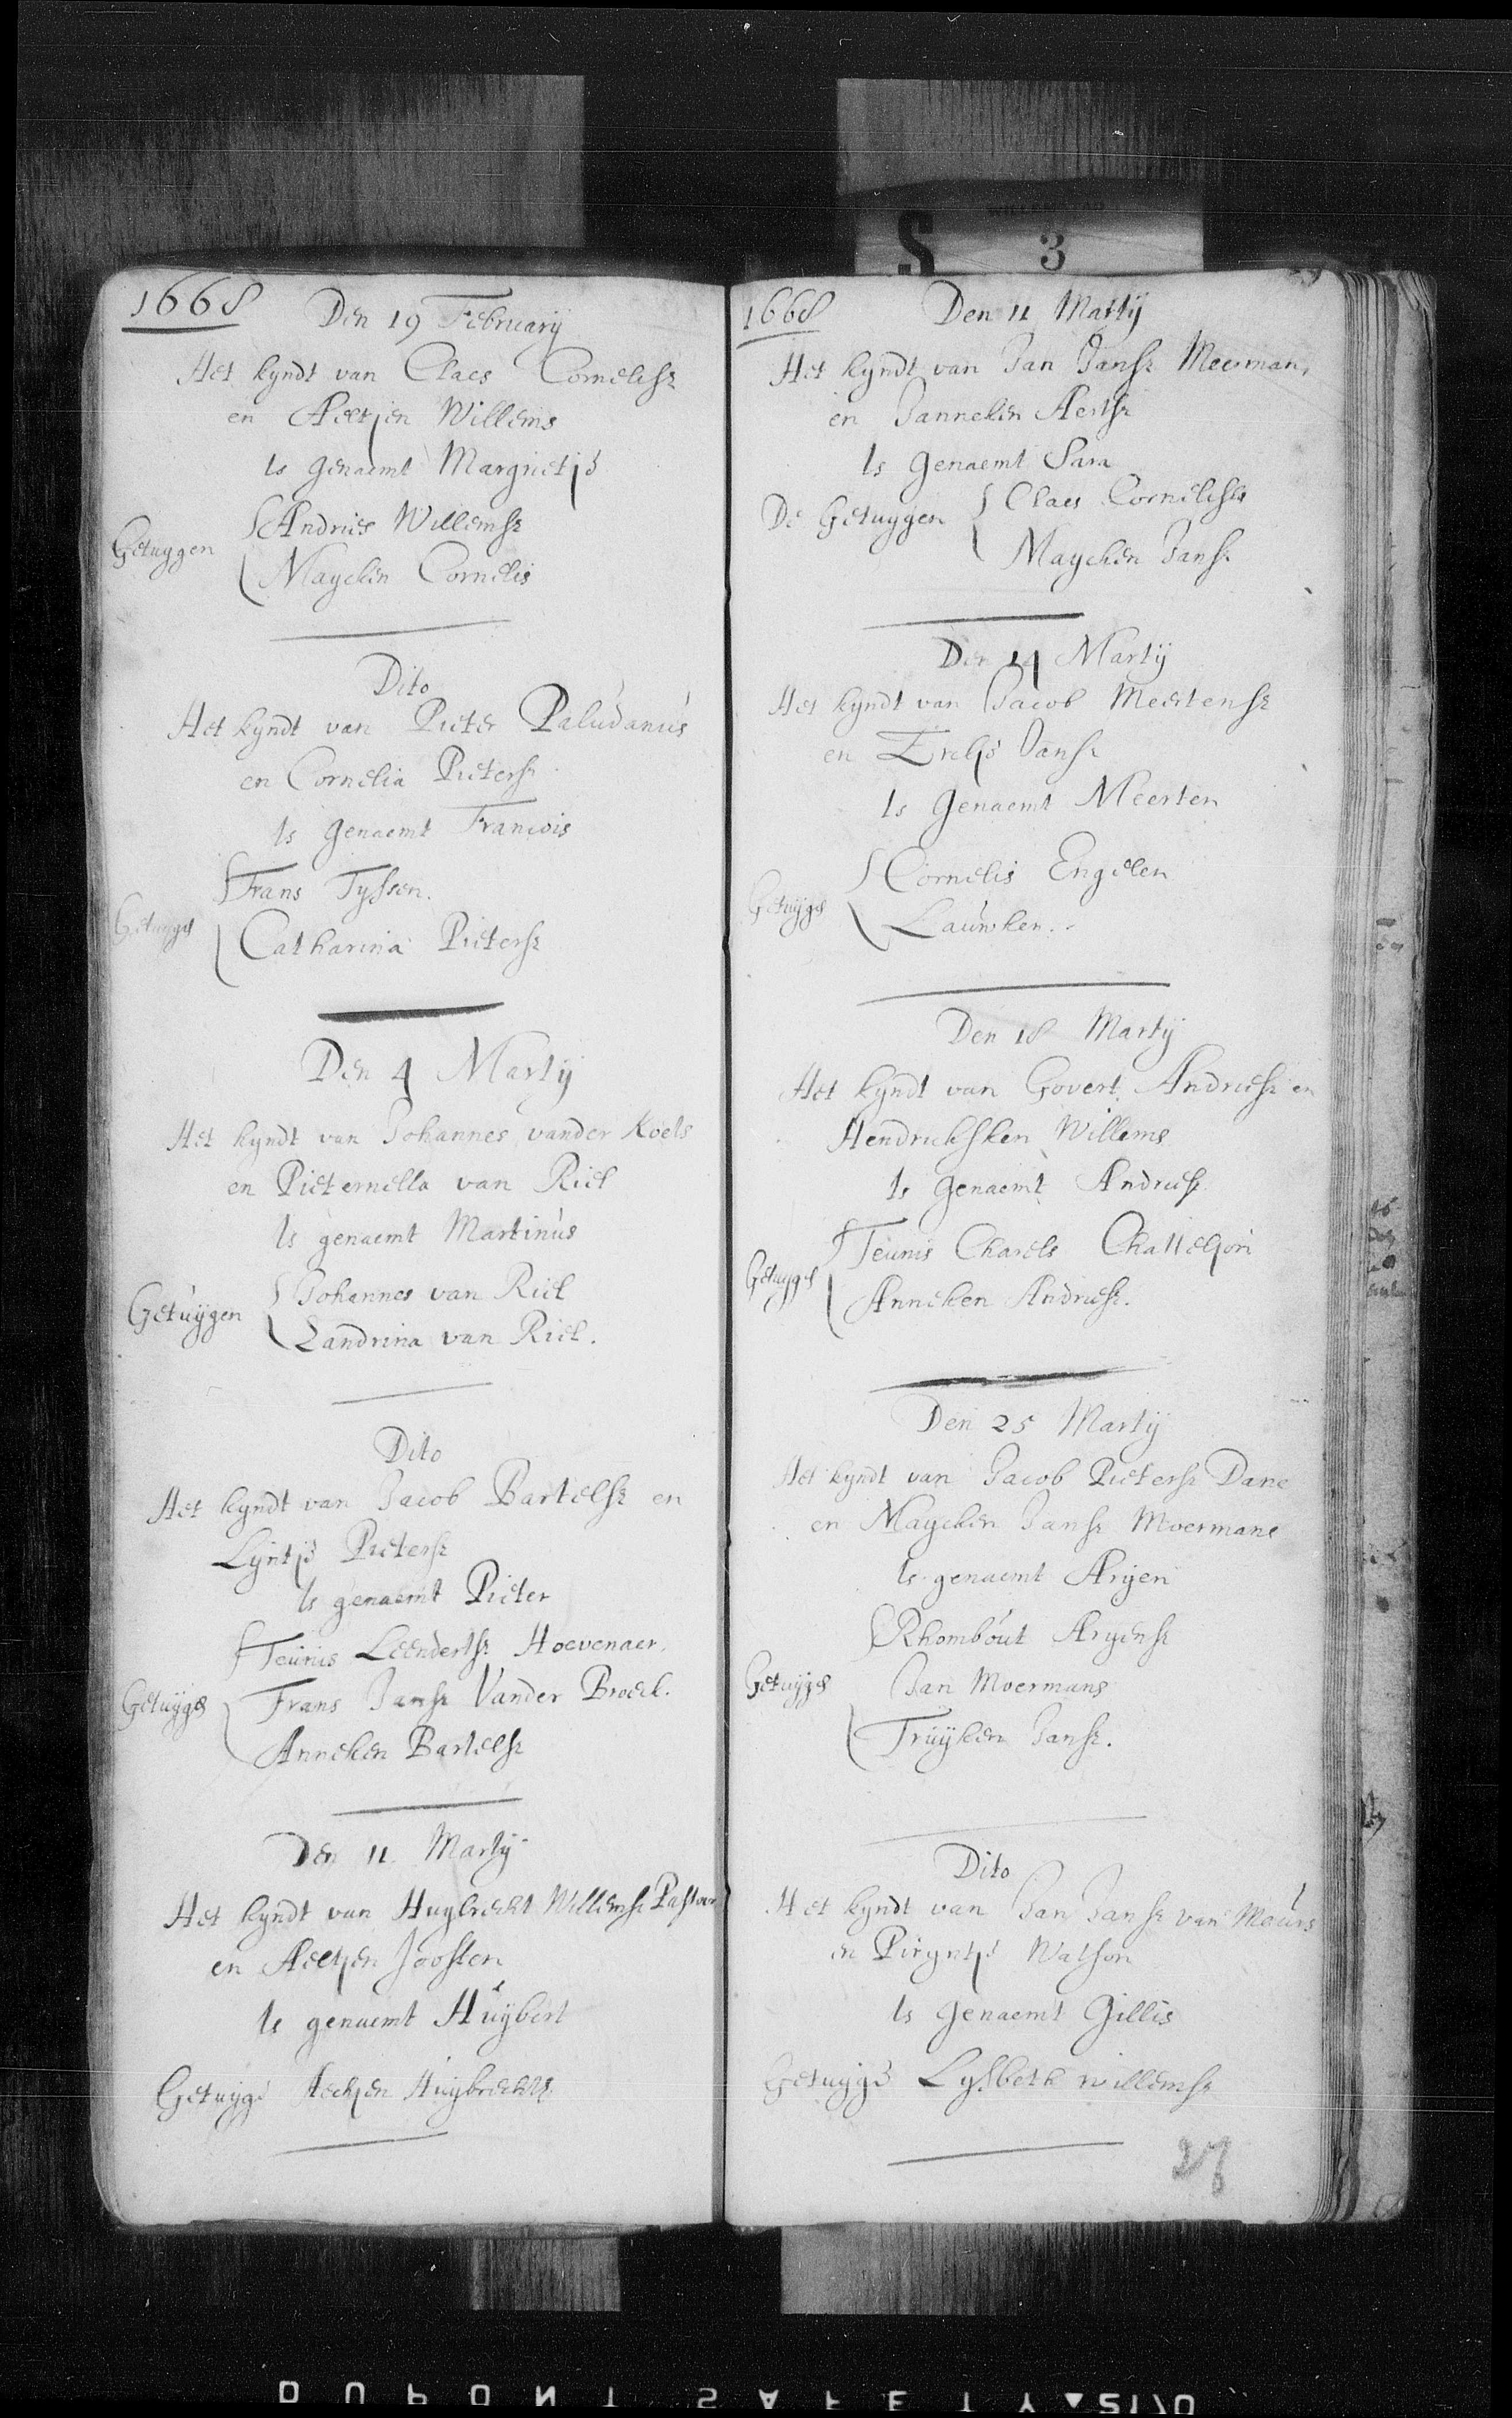 WILLEMSTAD
S 3
1668
Den 19 February
Het kyndt van Claes Cornelisse
en Aeltjen Willems
Is genaemt Margrietje
Getuygen
Andries Willemse
Maycken Cornelis
Dito
Het kyndt van Pieter Paludanus
en Cornelia Pieterse
Is genaemt Francois
Frans Tyssen.
Getuyges
Catharina Pieterse
Den 4 Martij
Het kyndt van Johannes vander Koels
en Pieternella van Riel
Is genaemt Martinus
Getuygen
Johannes van Riel
Zandrina van Riel.
Dito
Het kyndt van Jacob Bartelse en
Lyntje Pieterse
Is genaemt Pieter
Teunis Leendertse Hoevenaer.
Getuyges
Frans Janse Vander Broeck.
Anneken Bartelse
Den 11 Martij
Het kyndt van Huybrecht Willemse Pastoor
en Aeltjen Joosten
Is genaemt Huybert
Getuyge Aechjen Huybrechts
1668
Den 11 Martij
Het kyndt van Jan Janse Meerman,
en Janneken Aertse
Is genaemt Sara
De Getuygen
Claes Cornelisse
Maycken Janse
Den 14 Martij
Het kyndt van Jacob Meertense
en Janse
Is genaemt Meerten
Cornelis Engelen
Getuyges
Lauwken.
Den 18 Martij
Het kyndt van Govert Andriese en
Hendricksken Willems
Is genaemt Andries
Teunis Charels
Getuyges
Anneken Andriese.
Den 25 Martij
Het kyndt van Jacob Pieterse Dane
en Maycken Janse Moermans
Is genaemt Aryen
Rhombout Aryense
Getuyges
Jan Moermans
Truyken Janse.
Dito
Het kyndt van Jan Janse van Meurs
en Pieryntje Watson
Is genaemt Gillis
Getuyge Lysbeth willemse
27
DUPONT SAFETY